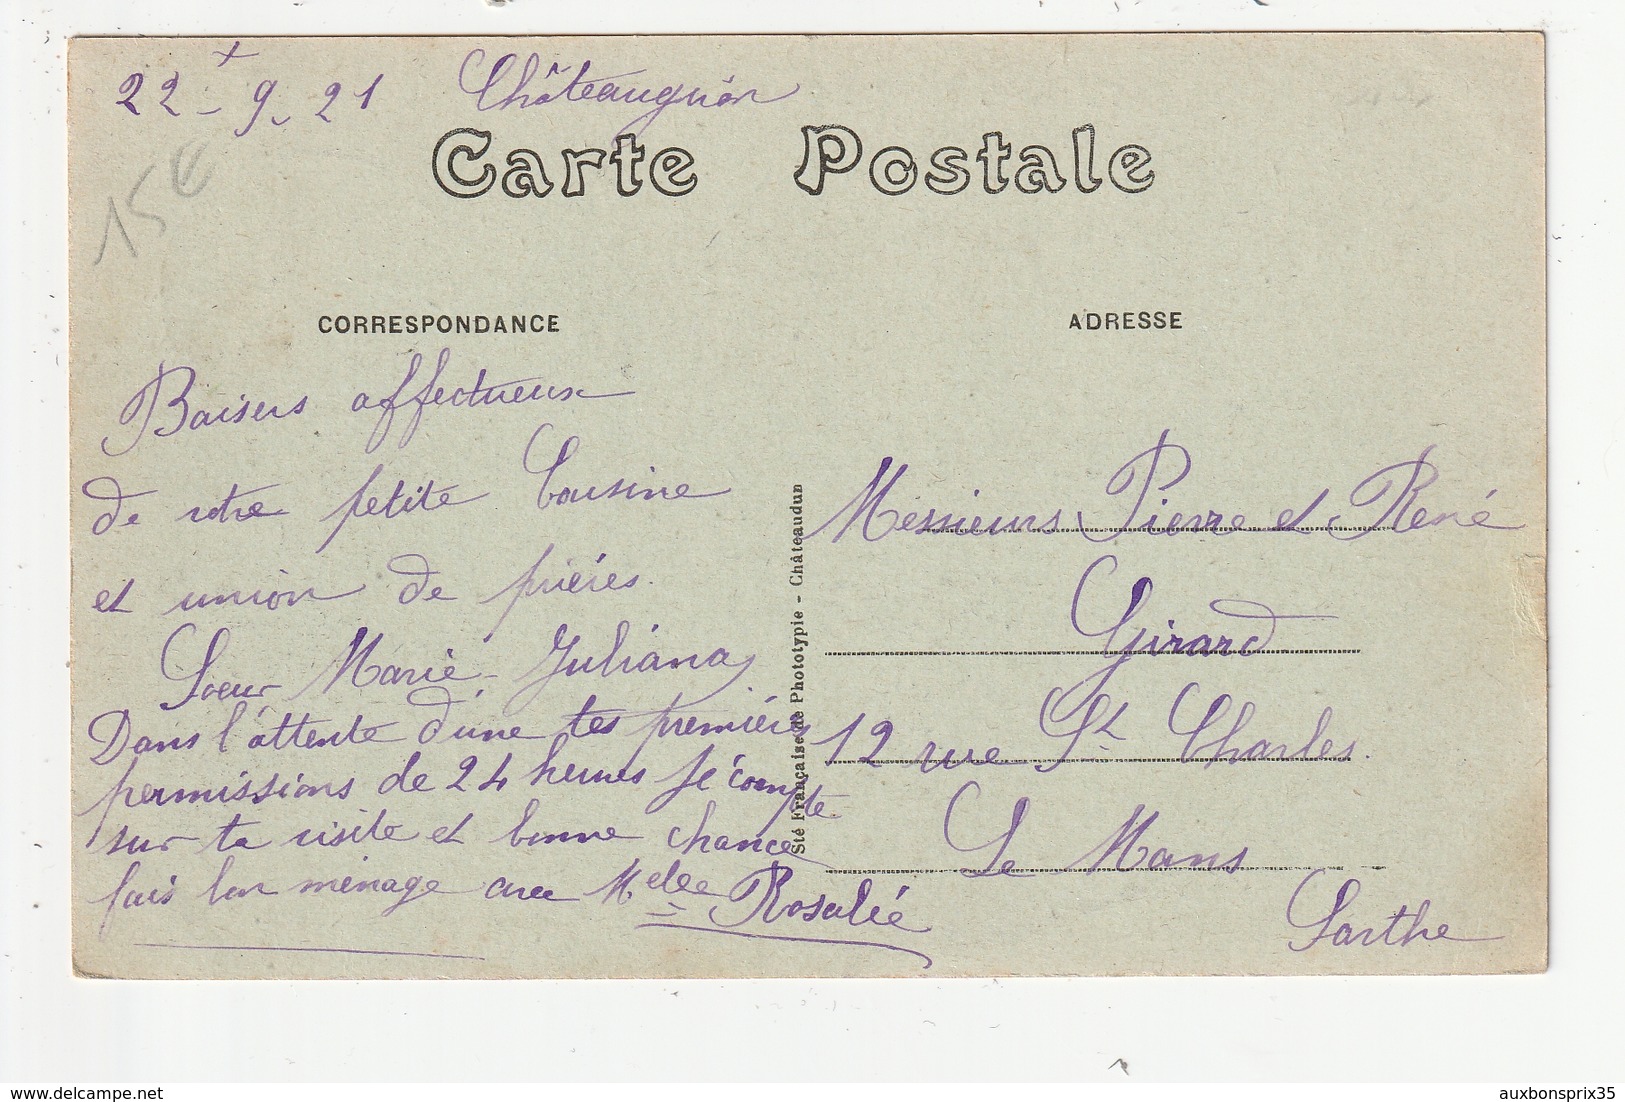 22 - 9. 21 Châteauguion
15€
Carte Postale
CORRESPONDANCE
Baisers affectueux
de votre petite Cousine
et union de prières.
Soeur Marie-Juliana
Dans l'attente d'une tes premières
permissions de 24 heures je compte
sur ta visite et bonne chance
fais bon ménage avec Melle Rosalie
Sté Française de Phototypie - Châteaudun
ADRESSE
Messieurs Pierre et René
Girard
12 rue St Charles.
Le Mans
Sarthe
delcampe.net
auxbonsprix35